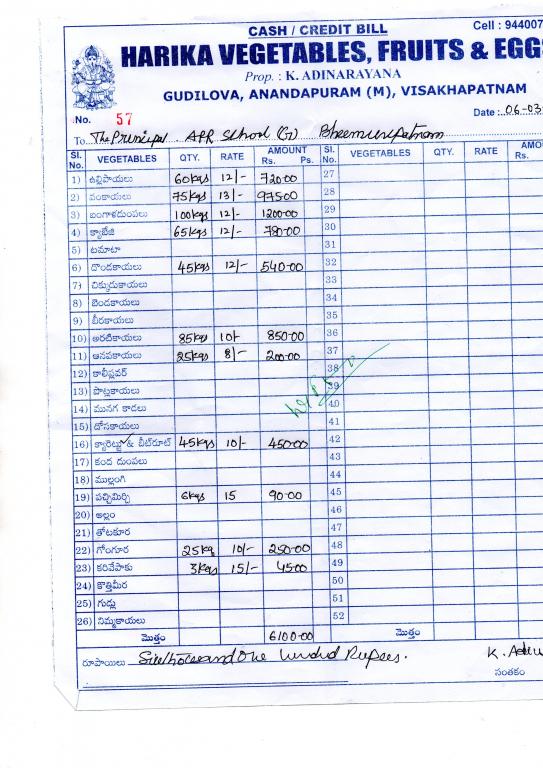 CASH / CREDIT BILL
Cell : 944007
HARIKA VEGETABLES, FRUITS & EGGS
Prop. : K. ADINARAYANA
GUDILOVA, ANANDAPURAM (M), VISAKHAPATNAM
No. 57
Date : 06-03
To The Principal APR School (G) Bheemunipatnam
Sl. No. VEGETABLES QTY. RATE AMOUNT Rs. Ps. Sl. No. VEGETABLES QTY. RATE AMOU Rs.
1) ఉల్లిపాయలు 60kgs 12/- 720-00 27
2) వంకాయలు 75kgs 13/- 975-00 28
3) బంగాళదుంపలు 100kgs 12/- 1200-00 29
4) క్యాబేజి 65kgs 12/- 780-00 30
5) టమాటా 31
6) దొండకాయలు 45kgs 12/- 540-00 32
7) చిక్కుడుకాయలు 33
8) బెండకాయలు 34
9) బీరకాయలు 35
10) అరటికాయలు 85kgs 10/- 850-00 36
11) ఆనపకాయలు 25kgs 8/- 200-00 37
12) కాలీఫ్లవర్ 38
13) పొట్లకాయలు 39
14) మునగ కాడలు 40
15) దోసకాయలు 41
16) క్యారెట్లు & బీట్‌రూట్ 45kgs 10/- 450-00 42
17) కంద దుంపలు 43
18) ముల్లంగి 44
19) పచ్చిమిర్చి 6kgs 15 90-00 45
20) అల్లం 46
21) తోటకూర 47
22) గోంగూర 25kg 10/- 250-00 48
23) కరివేపాకు 3kgs 15/- 45-00 49
24) కొత్తిమీర 50
25) గుడ్లు 51
26) నిమ్మకాయలు 52
మొత్తం 6100-00 మొత్తం
రూపాయిలు Six thousand One hundred Rupees.
K. Adin
సంతకం